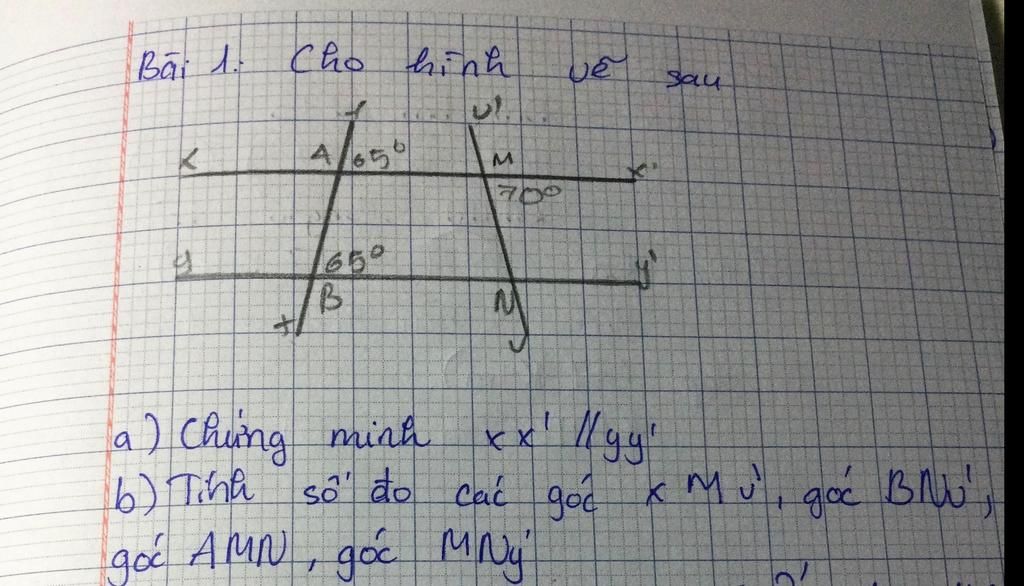 Bài 1: Cho hình vẽ sau
v'
x A 65° M x'
70°
y 65° y'
B N
t
a) Chứng minh xx' // yy'
b) Tính số đo các góc xMv', góc BNv',
góc AMN, góc MNy'